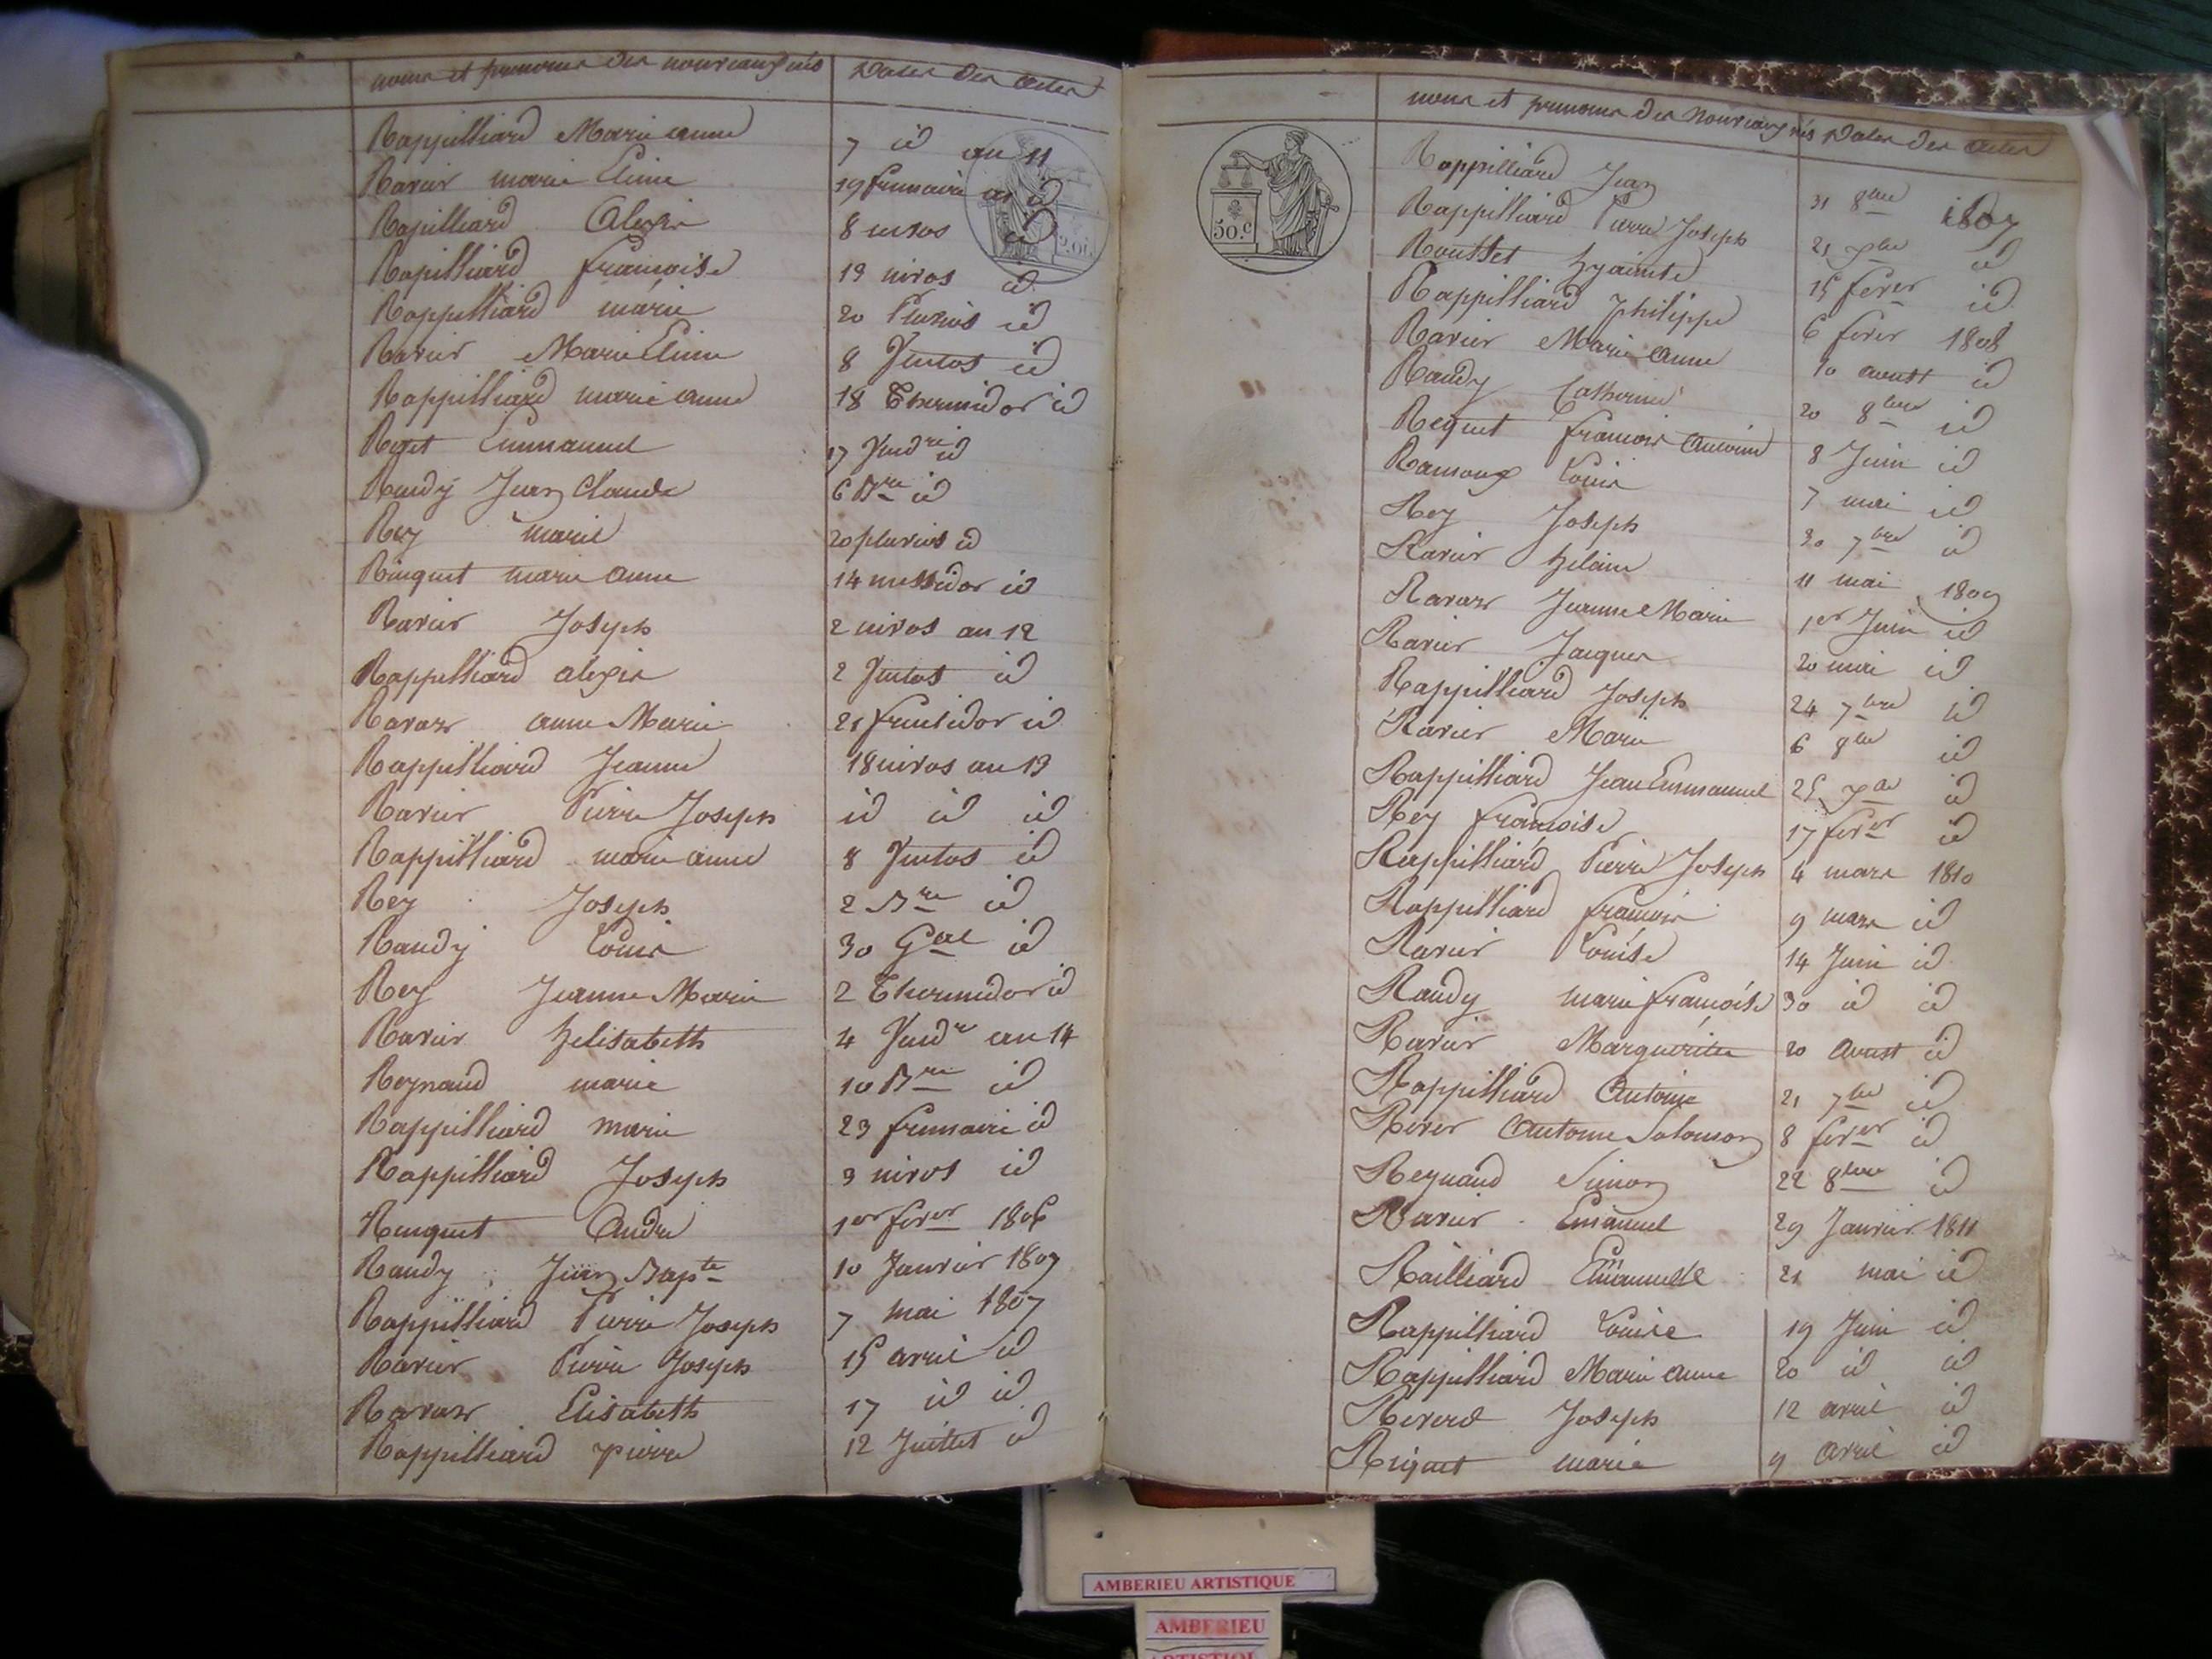 noms et prenoms des nouveaux nés Dates des actes
Rappilliard Marie anne 7 id an 11
Ravier marie Eline 19 frimaire an id
Rapilliard Alexis 8 nivos id
Rapilliard francoise 19 nivos id
Rappilliard marie 20 Pluvios id
Ravier Marie Eline 8 Ventos id
Rappilliard marie anne 18 Thermidor id
Emmanuel 17 Vendre id
Raudy Jean Claude 6 Bre id
Rey marie 20 pluvios id
Rinquet marie anne 14 messidor id
Ravier Joseph 2 nivos an 12
Rappilliard alexis 2 Ventos id
Ravaz anne Marie 21 fructidor id
Rappilliard Jeanne 18 nivos an 13
Ravier Pierre Joseph id id id
Rappilliard marie anne 8 Ventos id
Rey Joseph 2 Bre id
Raudy Louis 30 Gal id
Rey Jeanne Marie 2 Thermidor id
Ravier helisabeth 4 Vendre an 14
Reynaud marie 10 Bre id
Rappilliard marie 23 frimaire id
Rappilliard Joseph 3 nivos id
Renquet Andre 1er fevrer 1806
Raudy Jean Bapte 10 Janvier 1807
Rappilliard Pierre Joseph 7 mai 1807
Ravier Pierre Joseph 15 avril id
Ravaz Elisabeth 17 id id
Rappilliard pierre 12 Juillet id
noms et prenoms des nouveaux nés Dates des actes
50.c
Rappilliard Jean 31 8bre 1807
Rappilliard Pierre Joseph 21 id
Rousset hyacinte 15 fevrer id
Rappilliard philippe 6 fevrer 1808
Ravier Marie anne 10 aoust id
Raudy Catherine 20 8bre id
Requet francois Antoine 8 Juin id
Ramoux Louis 7 mai id
Rey Joseph 30 7bre id
Ravier helaine 11 mai 1809
Ravaz Jeanne Marie 1er Juin id
Ravier Jacques 20 mai id
Rappilliard Joseph 24 7bre id
Ravier Marie 6 8bre id
Rappilliard Jean Emmanuel 25 id
Rey francoise 17 fevrer id
Rappilliard Pierre Joseph 4 mars 1810
Rappilliard francois 9 mars id
Ravier Louise 14 Juin id
Raudy marie francoise 30 id id
Ravier Marguerite 20 Aoust id
Rappilliard Antoine 21 7bre id
Antoine Salomon 8 fevrer id
Reynaud Simon 22 8bre id
Ravier Emanuel 29 Janvier 1811
Railliard Emanuelle 21 mai id
Rappilliard Louise 19 Juin id
Rappilliard Marie anne 20 id id
Reverd Joseph 12 avril id
Riguet marie 9 avril id
AMBERIEU ARTISTIQUE
AMBERIEU
ARTISTIQUE